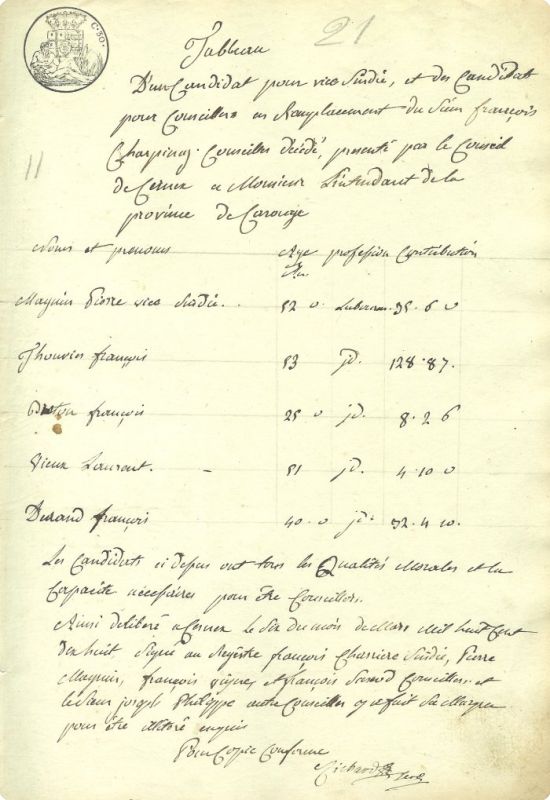 C. 30.
21
11
Tableau
D'un Candidat pour vice Sindic, et des Candidats
pour Conseillers en Remplacement du Sieur françois
Charpinaz Conseiller décédé, presenté par le Conseil
de Cernex a Monsieur L'intendant de la
province de Carouge
Noms et prenoms Age profession Contribution
An.
Magnin Pierre vice Sindic. 52 0 Laboureur 35. 6 0
Thouvier françois 53 jd. 128. 87.
françois 25 0 jd. 8. 2 6
Vieux Laurent. - 51 jd. 4. 10 0
Durand françois 40. 0 jd. 32. 4 10.
Les Candidats ci dessus ont tous les Qualités Morales et la
Capacité nécessaires pour être Conseillers.
Ainsi deliberé a Cernex le Six du mois de Mars Mil huit Cent
dix huit, Signé au Registre françois Charriere Sindic, Pierre
Magnin, françois et françois Conseillers et
le Sieur joseph Philippe autre Conseiller y a fait Sa Marque
pour être illitéré
Pour Copie Conforme